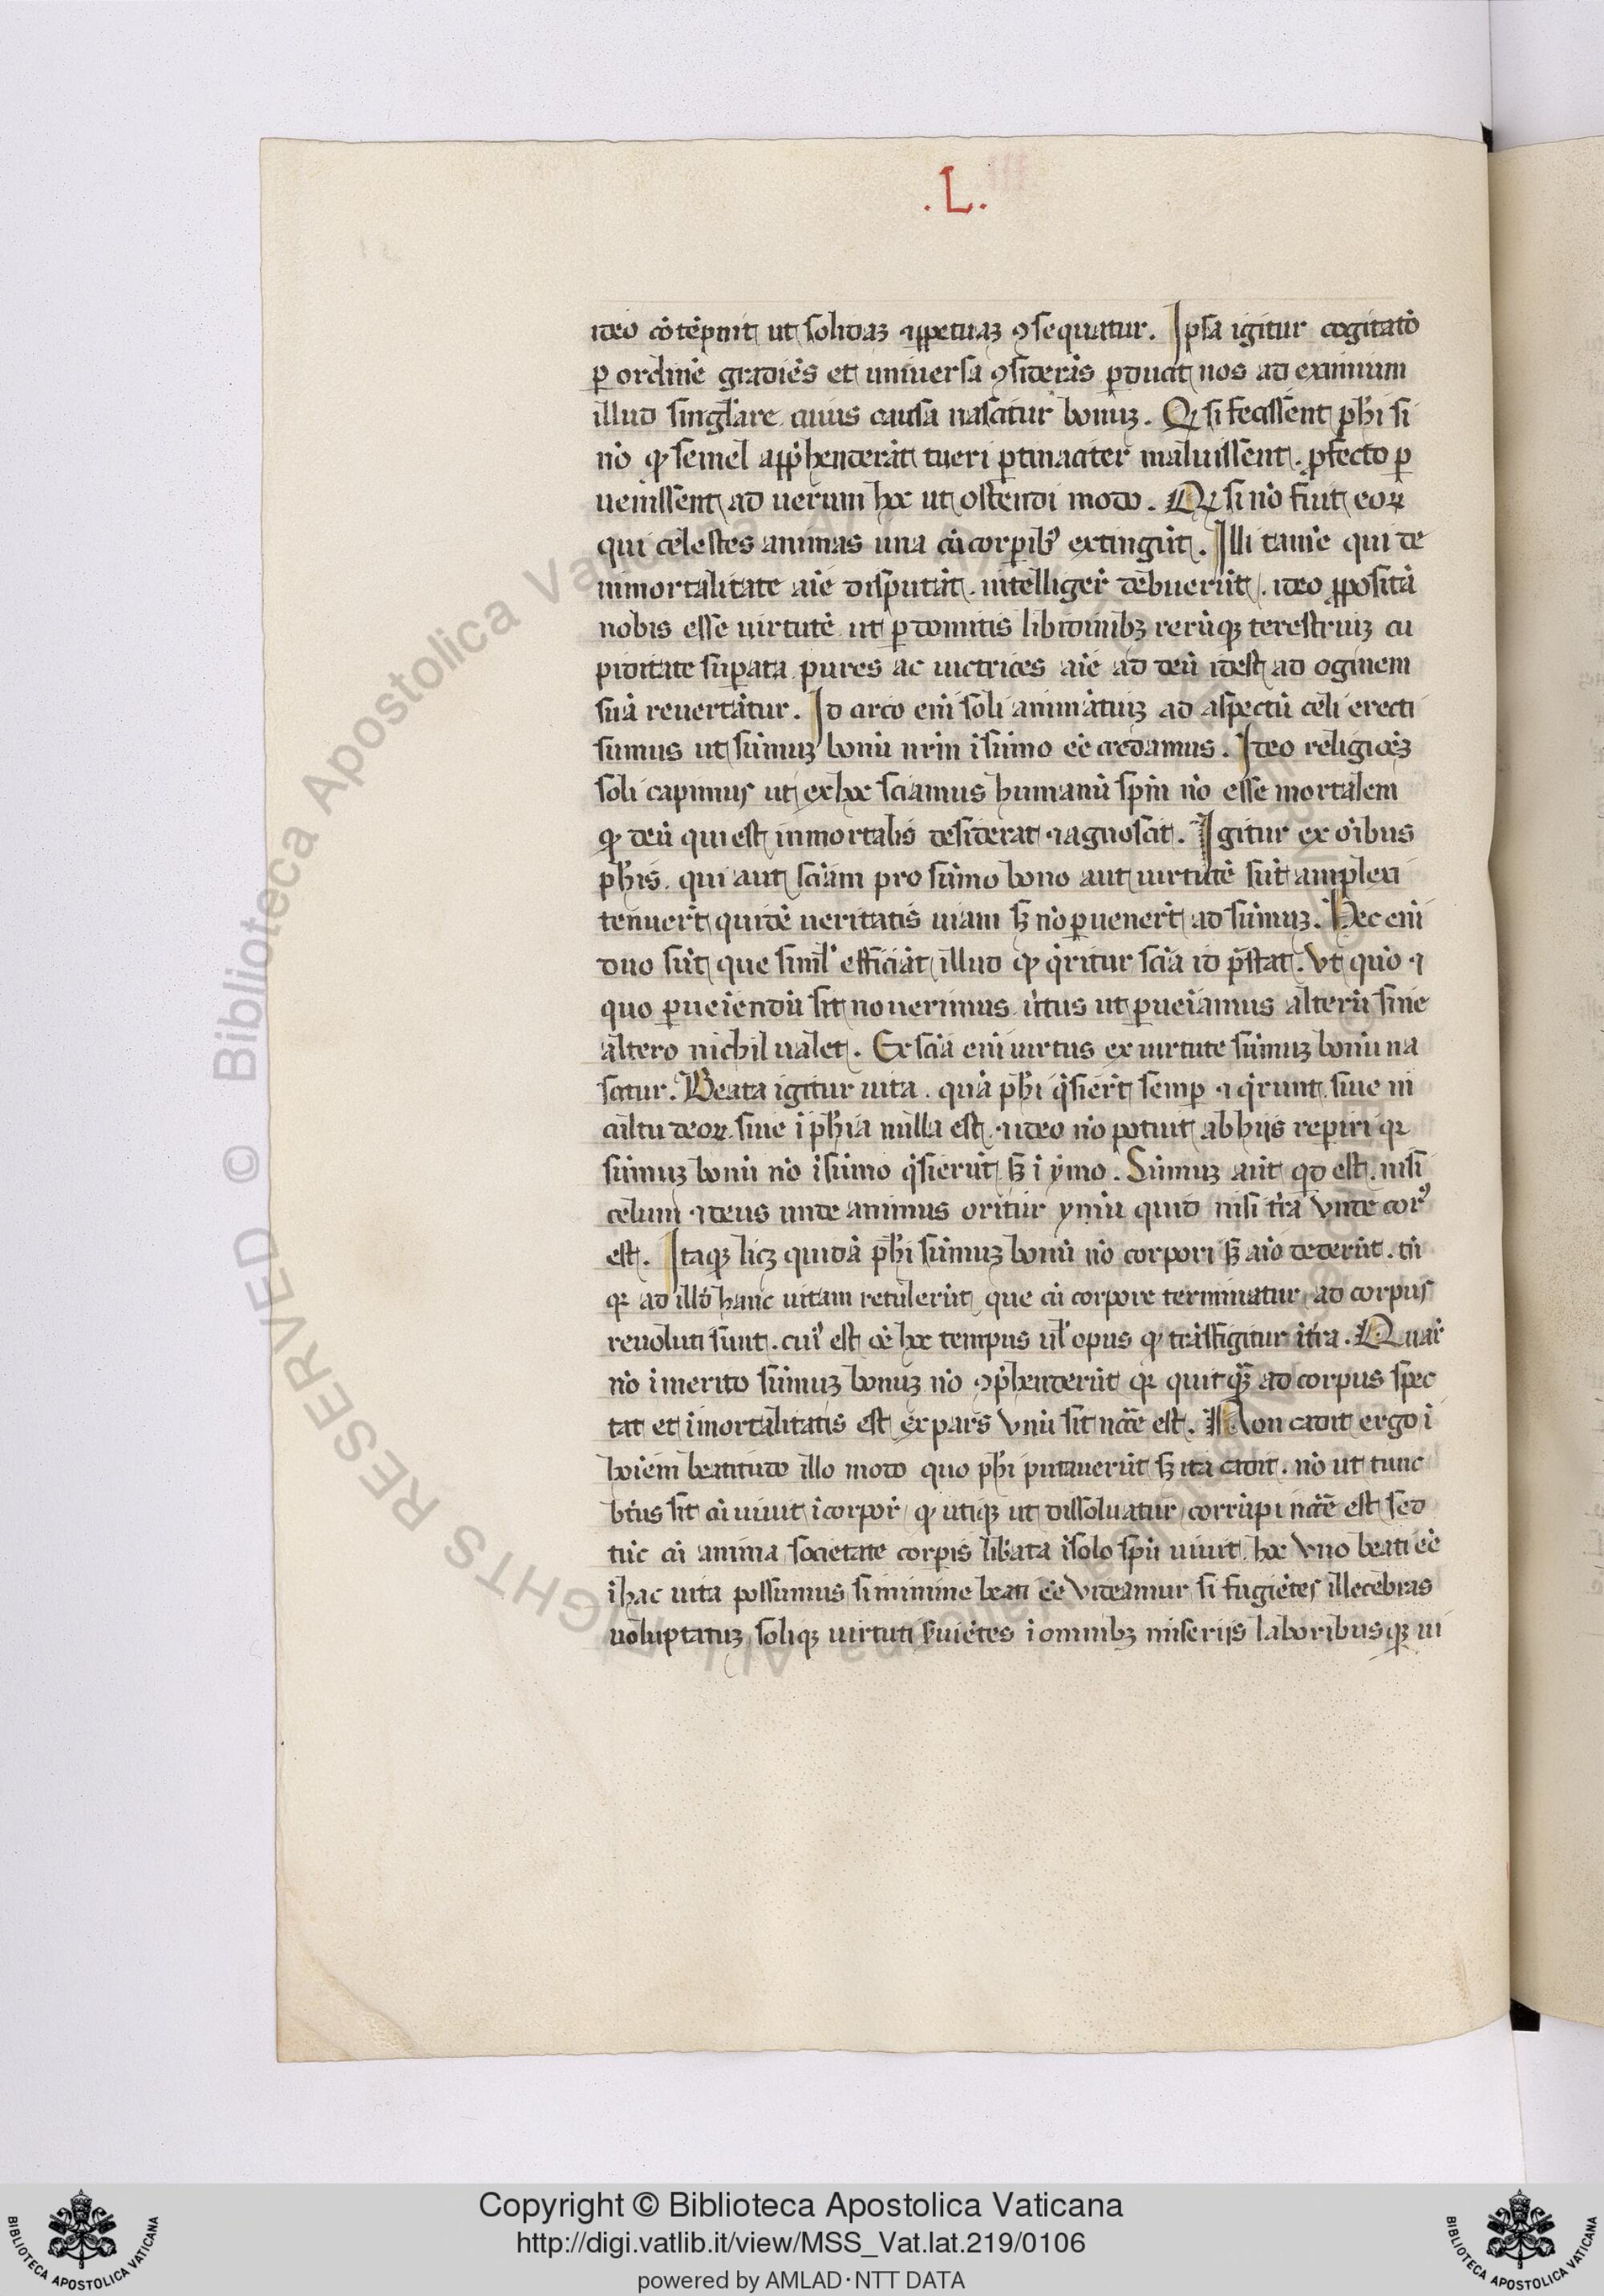 .L.
ideo cōtēpnit ut solidaꝫ ⁊ ꝓpetuaꝫ ꝯsequatur. Ipsa igitur cogitatō
ꝑ ordinē gradiēs et universa ꝯsiderās ꝑducit nos ad eximium
illud singl'are cuius causa nascitur bonuꝫ. Qꝫ si fecissent phī si
nō qꝫ semel app̄henderāt tueri ꝑtinaciter maluissent. ꝓfecto ꝑ
uenissent ad uerum hoc ut ostendi modo. Qꝫ si nō fuit eoꝝ
qui celestes animas una cū corporibꝰ extingūt. Illi tamē qui de
inmortalitate aīe disputāt. intelligēr debuerūt. ideo ꝓpositā
nobis esse uirtutē ut ꝑdomitis libidinibꝫ rerūqꝫ terestriuꝫ cu
piditate suꝑata pures ac uictrices aīe ad deū idest ad oginem
suā revertātur. Id circo enī soli animātiuꝫ ad aspectū celi erecti
sumus ut sūmuꝫ bonū nr̄m ī sūmo eē credamus. Ideo religiōeꝫ
soli capimus ut ex hoc sciamus humanū spm̄ nō esse mortalem
qꝫ deū qui est inmortalis desiderat ⁊ agnoscit. Igitur ex oībus
phīs. qui aut sciām pro sūmo bono aut uirtutē sūt amplexi
tenuer̄t quidē ueritatis uiam sꝫ nō ꝑuener̄t ad sūmuꝫ. Hec enī
duo sūt que simil' efficiāt illud qꝫ q̄ritur sciā id p̄stat. Vt quō ⁊
quo ꝑueīendū sit noverimus ūtus ut ꝑueīamus alterū sine
altero nichil valet. Ex sciā enī virtus ex virtute sūmuꝫ bonū na
scitur. Beata igitur uita. quā phī q̄sier̄t semꝑ ⁊ q̄runt. siue in
cultu deoꝝ. siue ī phīa nulla est. ⁊ ideo nō potuit ab hijs reꝑiri qꝛ
sūmuꝫ bonū nō ī sūmo q̄sierūt sꝫ ī ymo. Sūmuꝫ aūt qd est. nisi
celum ⁊ deus unde animus oritur ymū quid nisi tr̄a unde corꝰ
est. Itaqꝫ licꝫ quidā phī sūmuꝫ bonū nō corpori sꝫ aīo dederūt. tn̄
qꝛ ad illō hanc uitam retulerūt que cū corpore terminatur ad corpus
revoluti sunt. cuiꝰ est oē hoc tempus ul' opus qꝫ trāsfigitur ī tr̄a. Quar̄
nō īmerito sūmuꝫ bonuꝫ nō ꝯp̄henderūt qꝛ quitqꝫ ad corpus spec
tat et īmortalitatis est exꝑars unū sit ncc̄e est. Non cadit ergo ī
hoīem beatitudo illo modo quo phī putauerūt sꝫ ita cadit. nō ut tunc
bt̄us sit cū uiuit ī corpor̄ qꝫ utiqꝫ ut dissoluatur corrūpi ncc̄e est sed
tūc cū anima societate corꝑis lib̄ata ī solo spū uiuit. hoc uno beati eē
ī hac uita possumus si minime beati eē uideamur si fugiētes illecebras
uoluptatuꝫ soliqꝫ uirtuti ſ̄uiētes ī omnibꝫ miserijs laboribusqꝫ ui
Copyright © Biblioteca Apostolica Vaticana
http://digi.vatlib.it/view/MSS_Vat.lat.219/0106
powered by AMLAD·NTT DATA